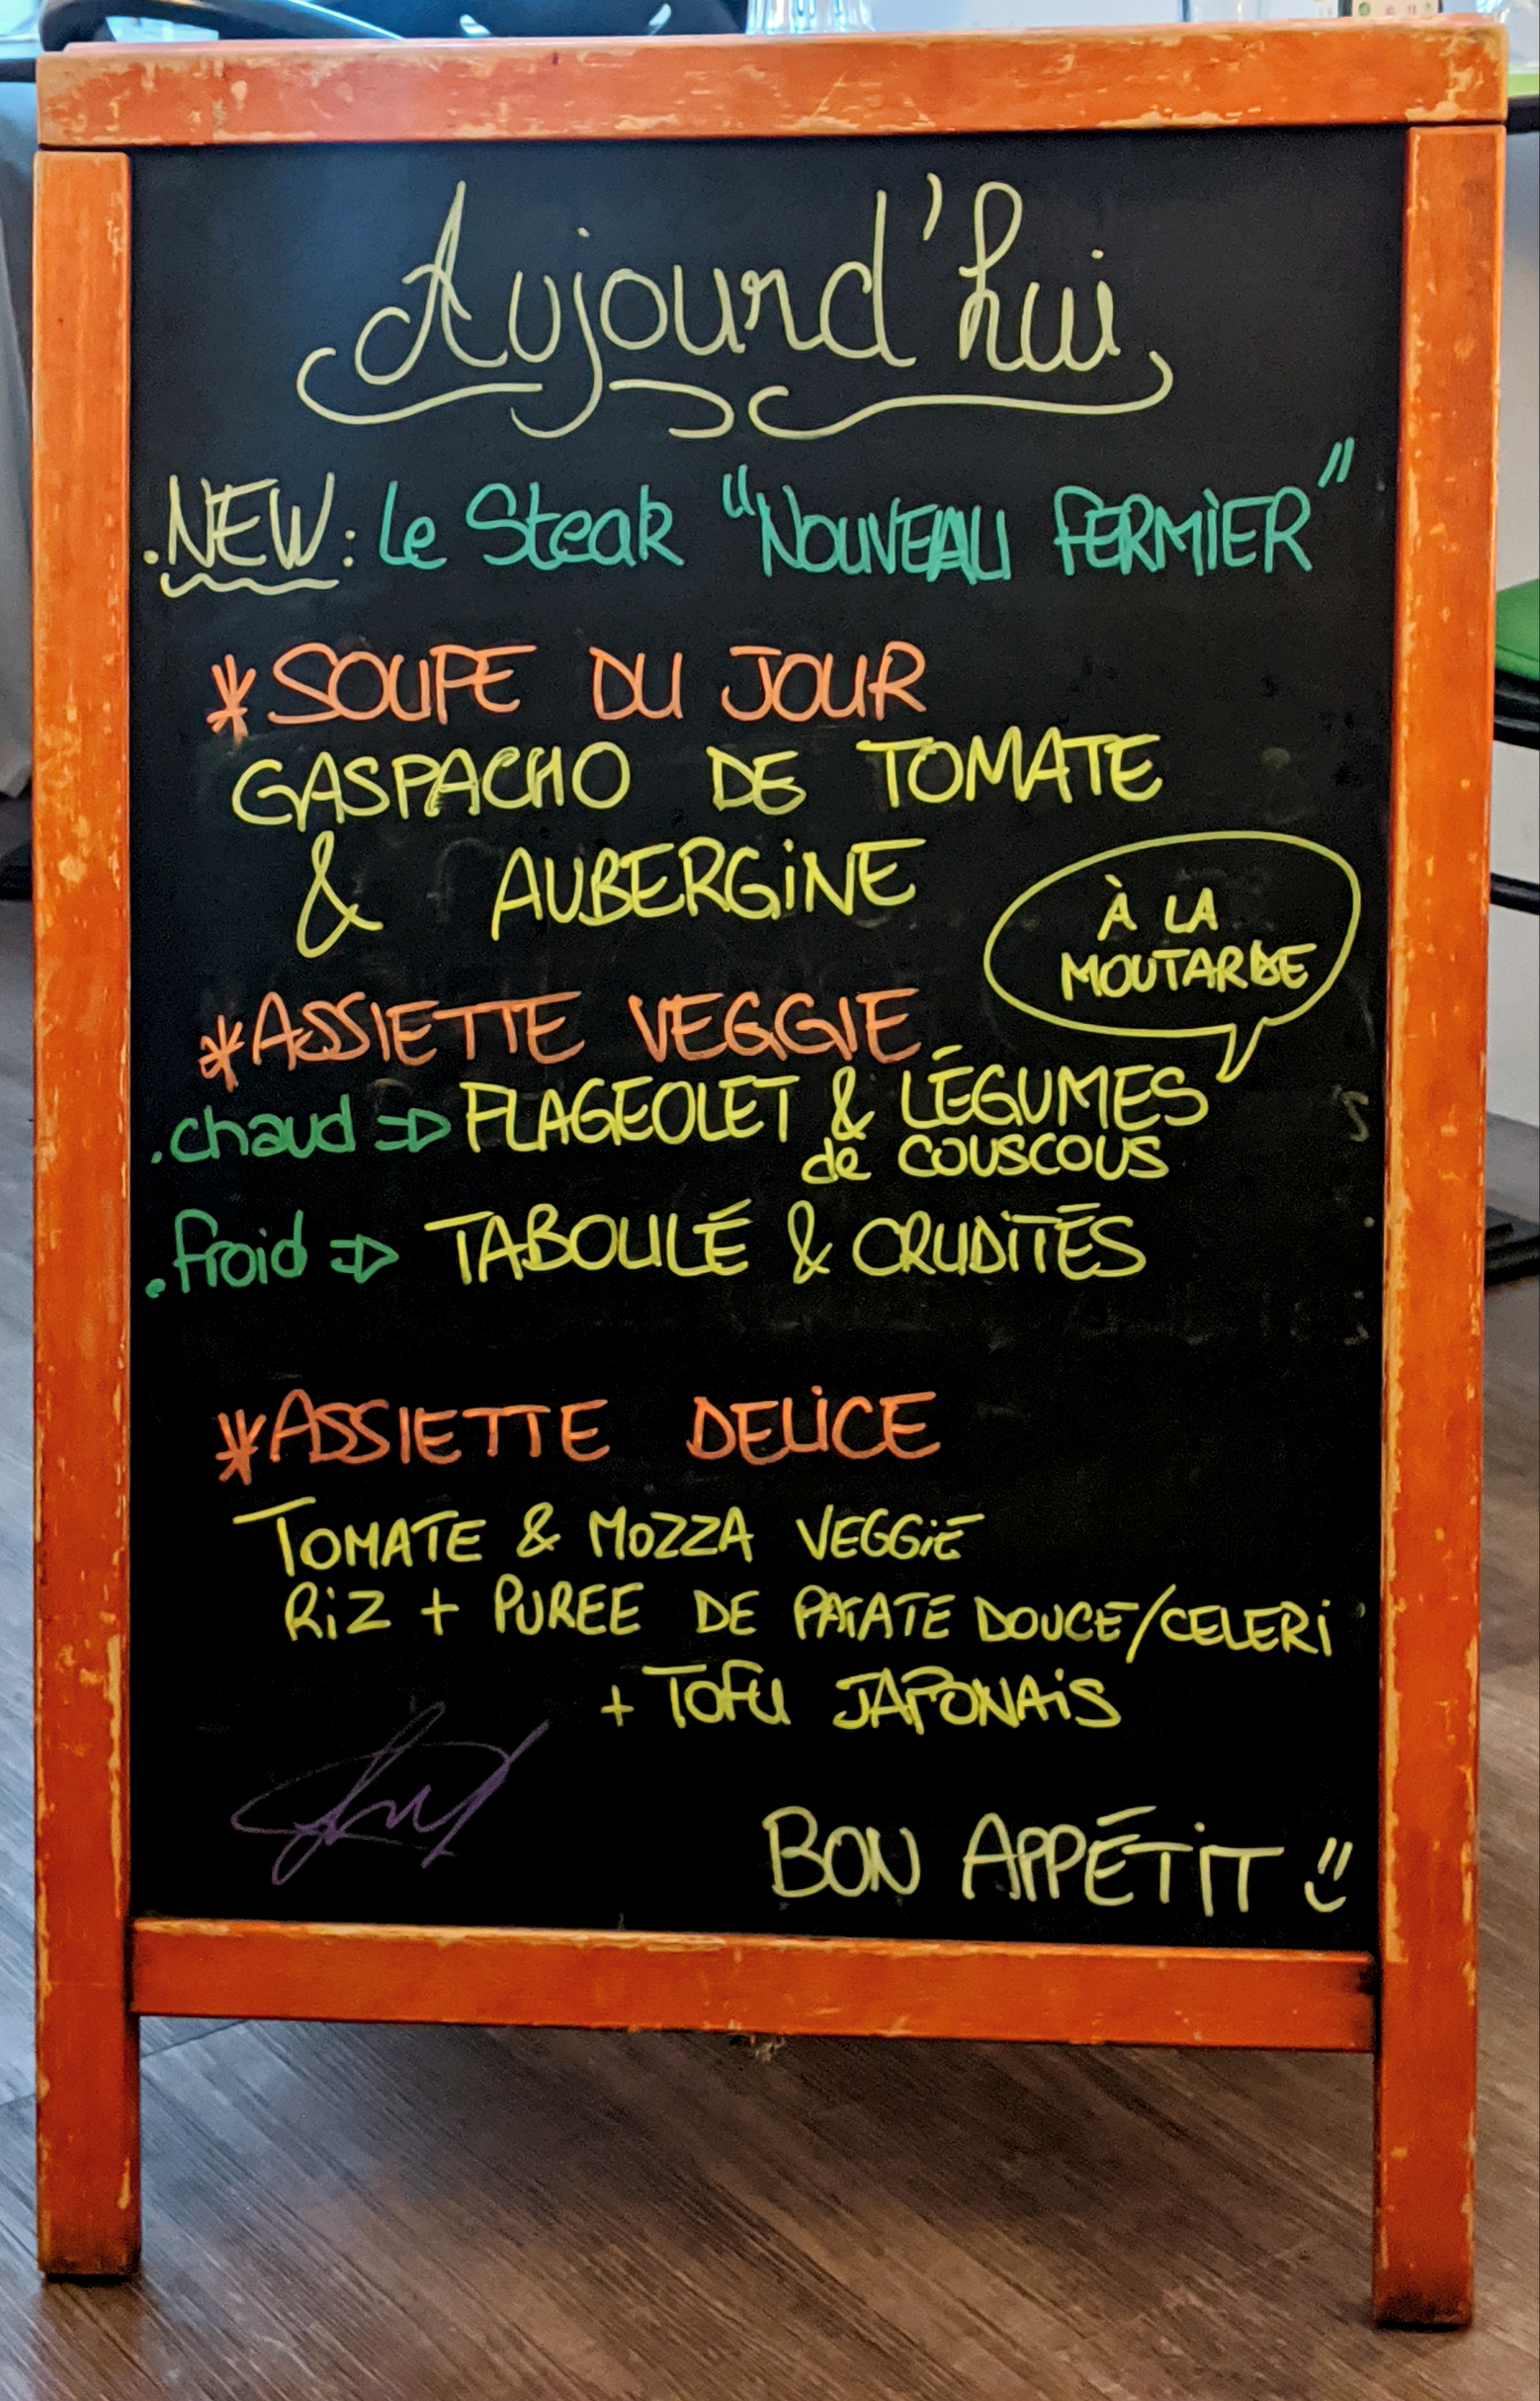 Aujourd'hui
.NEW: Le Steak "NOUVEAU FERMIER"
*SOUPE DU JOUR
GASPACHO DE TOMATE
& AUBERGINE
À LA
MOUTARDE
*ASSIETTE VEGGIE
.chaud => FLAGEOLET & LÉGUMES
de couscous
.froid => TABOULÉ & CRUDITÉS
*ASSIETTE DELICE
TOMATE & MOZZA VEGGIE
RIZ + PUREE DE PATATE DOUCE/CELERI
+ TOFU JAPONAIS
BON APPÉTIT